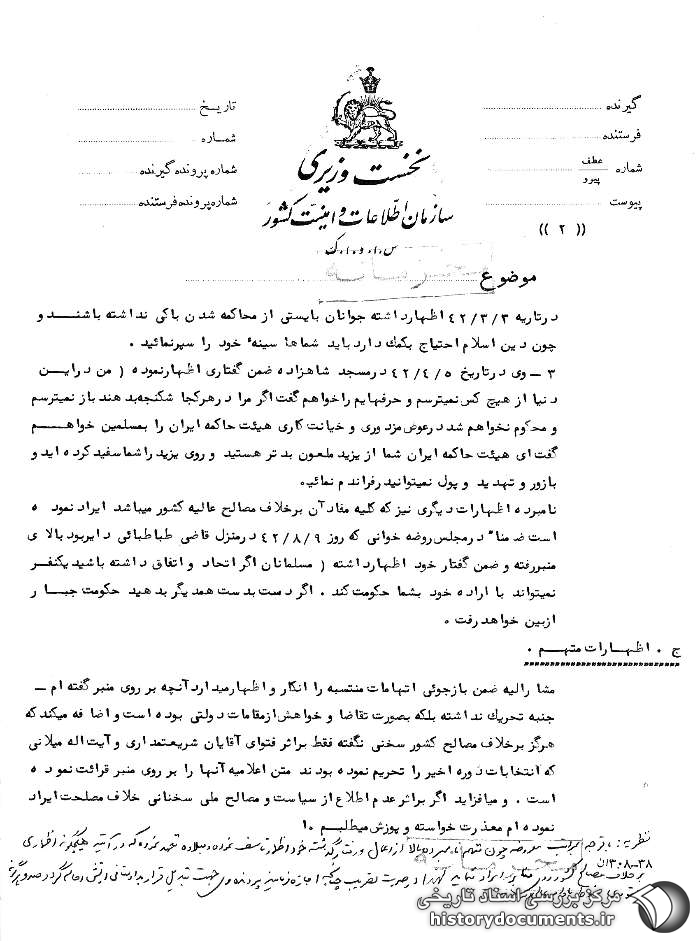 گیرنده
فرستنده
شماره عطف پیرو
پیوست
تاریخ
شماره
شماره پرونده گیرنده
شماره پرونده فرستنده
نخست وزیری
سازمان اطلاعات و امنیت کشور
س.ا.و.ا.ک
(( ۲ ))
موضوع
درتاریه ۴۲/۳/۳ اظهارداشته جوانان بایستی از محاکمه شدن باکی نداشته باشند و
چون دین اسلام احتیاج بکمک دارد باید شماها سینهٔ خود را سپرنمائید .
۳ ــ وی درتاریخ ۴۲/۴/۵ درمسجد شاهزاده ضمن گفتاری اظهارنموده ( من دراین
دنیا از هیچ کس نمیترسم و حرفهایم راخواهم گفت اگر مرا درهرکجا شکنجه بدهند باز نمیترسم
و محکوم نخواهم شد درعوض مزدوری و خیانت کاری هیئت حاکمه ایران را بمسلمین خواهم
گفت ای هیئت حاکمه ایران شما از یزید ملعون بدتر هستید و روی یزید را شما سفید کرده اید و
بازور و تهدید و پول نمیتوانید رفراندم نمائید
نامبرده اظهارات دیگری نیز که کلیه مفاد آن برخلاف مصالح عالیه کشور میباشد ایراد نموده
است ضمناً درمجلس روضه خوانی که روز ۴۲/۸/۹ درمنزل قاضی طباطبائی دایربود بالای
منبررفته و ضمن گفتار خود اظهارداشته ( مسلمانان اگر اتحاد و اتفاق داشته باشید یکنفر
نمیتواند با اراده خود بشما حکومت کند . اگر دست بدست همدیگر بدهید حکومت جبار
ازبین خواهد رفت .
ج . اظهارات متهم .
مشارالیه ضمن بازجوئی اتهامات منتسبه را انکار و اظهارمیدارد آنچه بر روی منبر گفته ام ــ
جنبه تحریک نداشته بلکه بصورت تقاضا و خواهش ازمقامات دولتی بوده است و اضافه میکند که
هرگز برخلاف مصالح کشور سخنی نگفته فقط براثر فتوای آقایان شریعتمداری و آیت اله میلانی
که انتخابات دوره اخیر را تحریم نموده بودند متن اعلامیه آنها را بر روی منبر قرائت نموده
است . و میافزاید اگر براثر عدم اطلاع از سیاست و مصالح ملی سخنانی خلاف مصلحت ایراد
نموده ام معذرت خواسته و پوزش میطلبم
نظریه : با توجه بمراتب معروضه چون متهم نامبرده بالا از اعمال و رفتار گذشته خود اظهار تاسف نموده و تعهد نموده که در آتیه هیچگونه اظهاری
برخلاف مصالح
مرکز بررسی اسناد تاریخی
historydocuments.ir